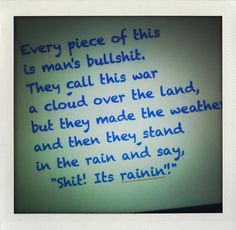 Every piece of this
is man's bullshit.
They call this war
a cloud over the land,
but they made the weather
and then they stand
in the rain and say,
"Shit! Its rainin'!"